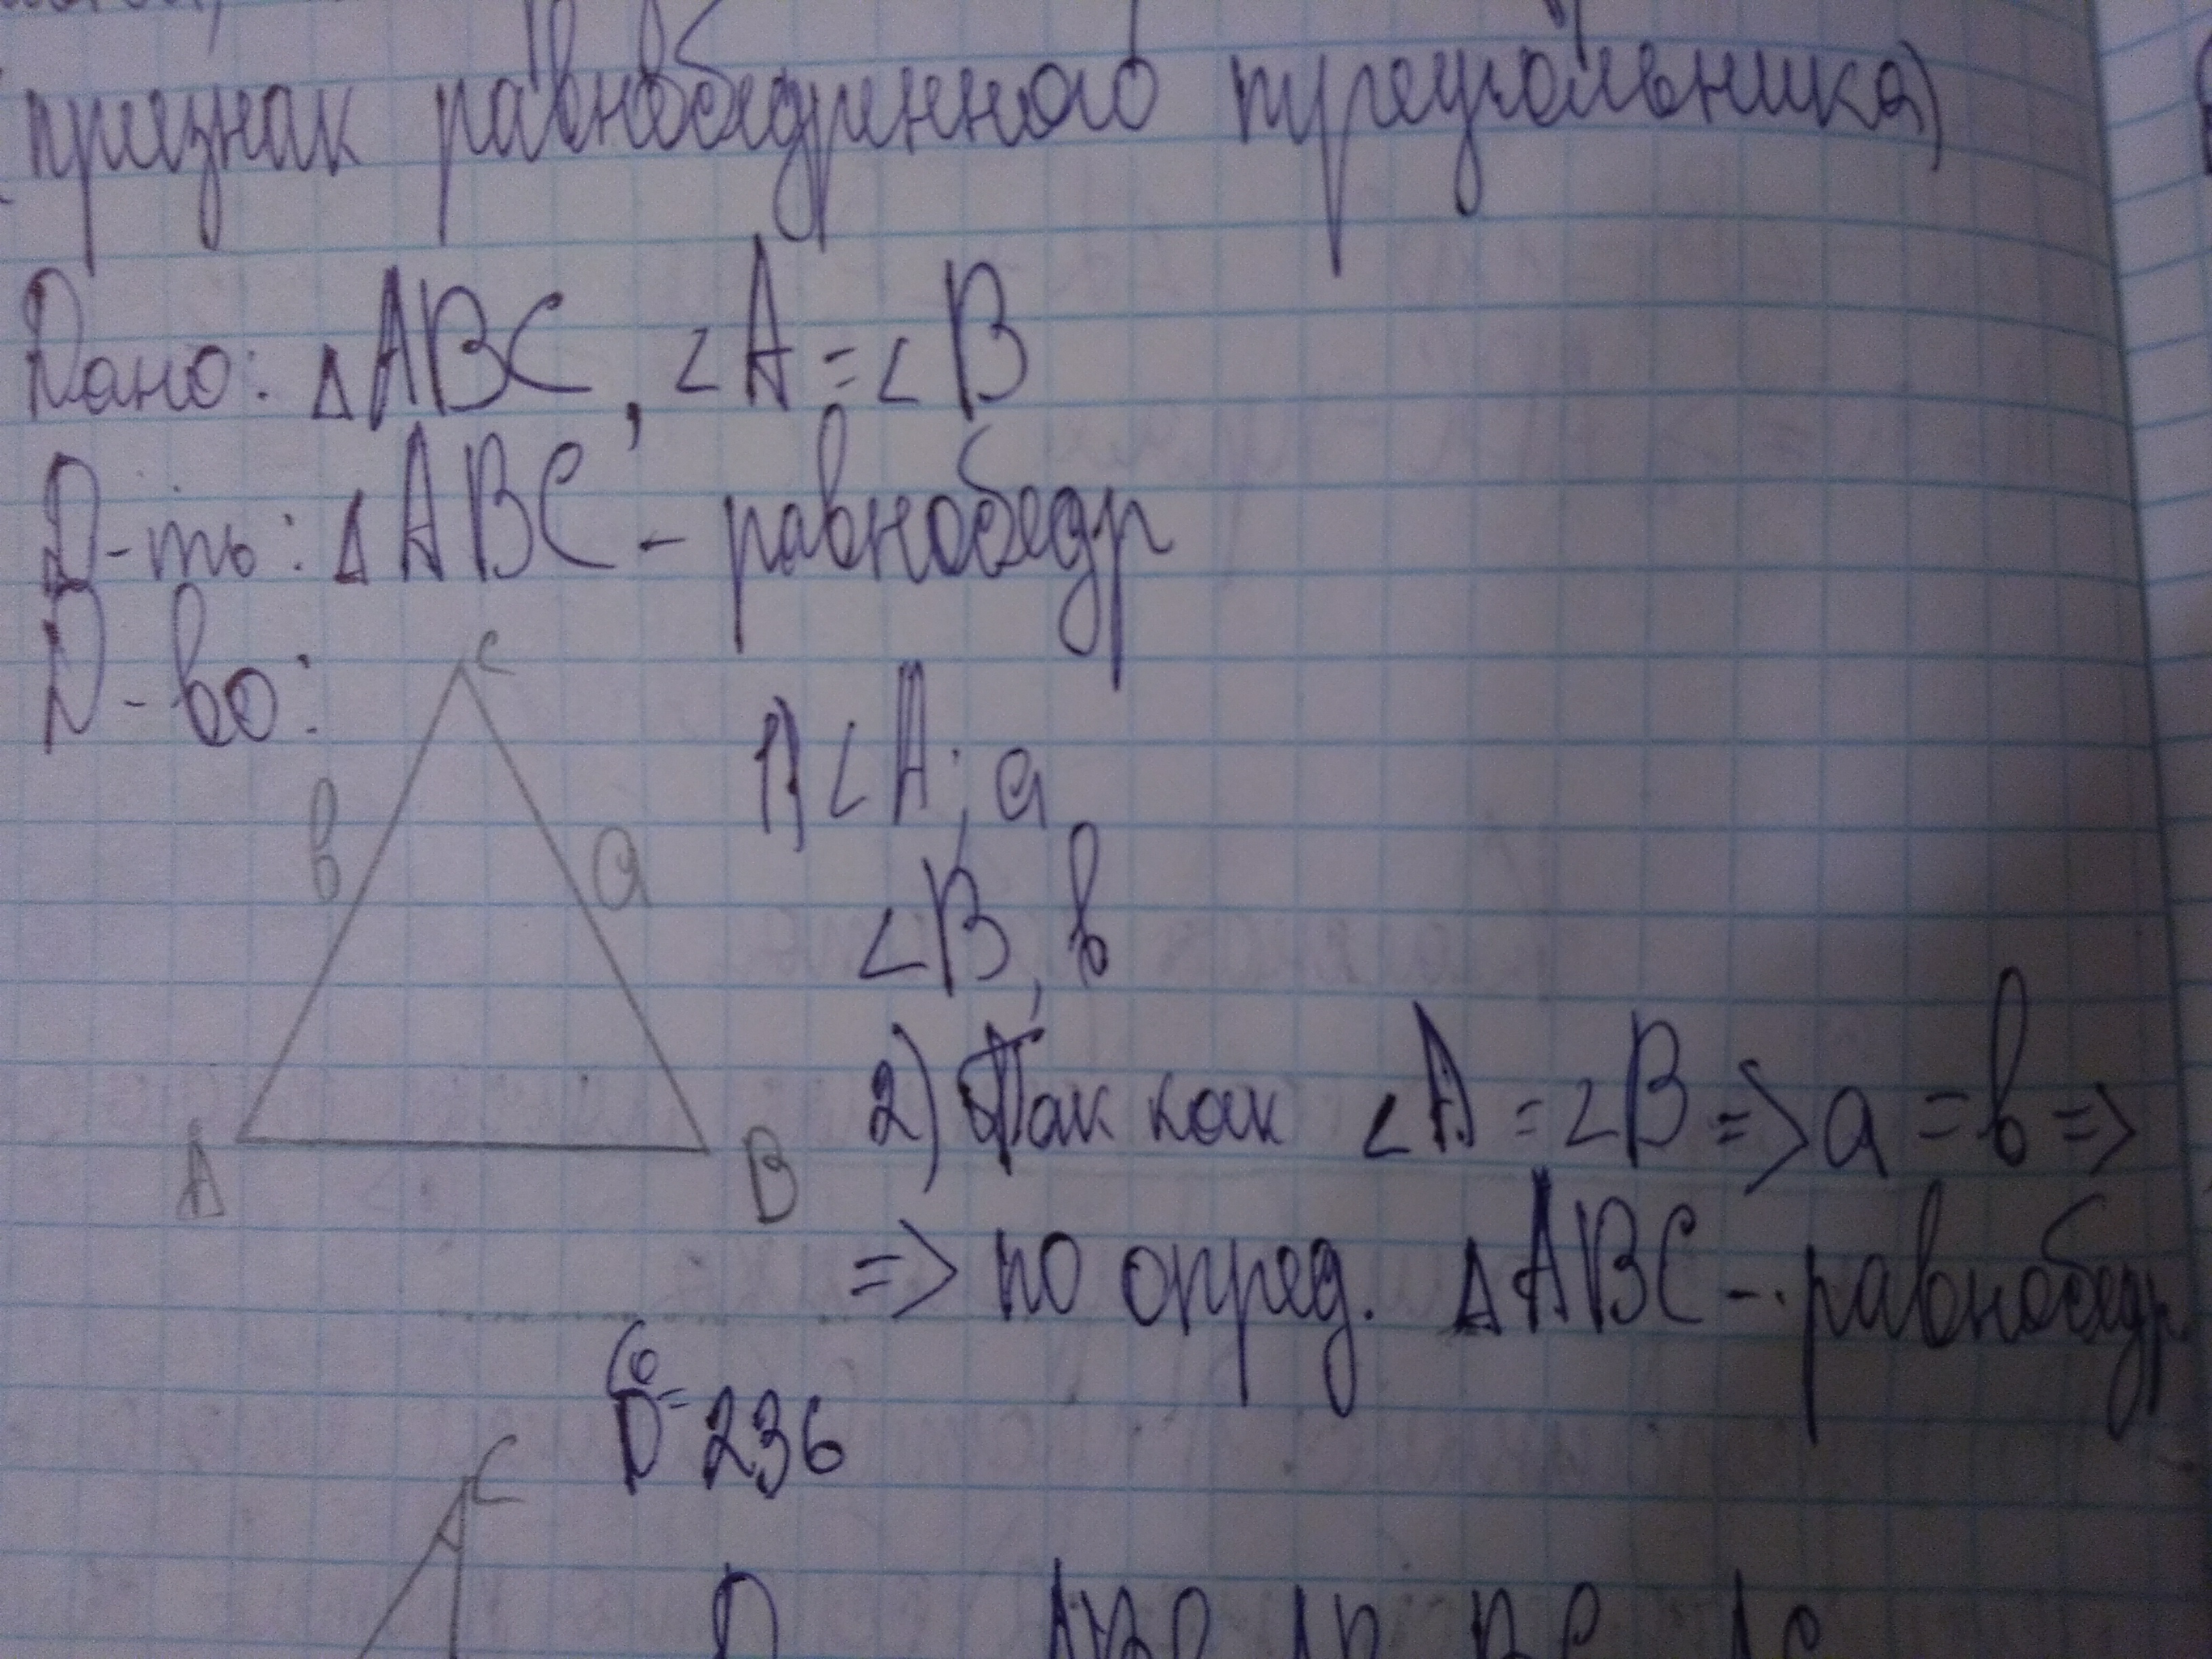 признак равнобедренного треугольника)
Дано: △ABC, ∠A = ∠B
Д-ть: △ABC - равнобедр
Д-во:
C
в
a
A
B
1) ∠A; a
∠B, в
2) Так как ∠A = ∠B => a = в =>
=> по опред. △ABC - равнобедр.
236
C